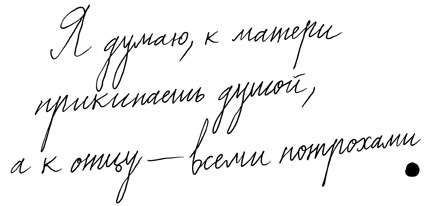 Я думаю, к матери
прикипаешь душой,
а к отцу — всеми потрохами.